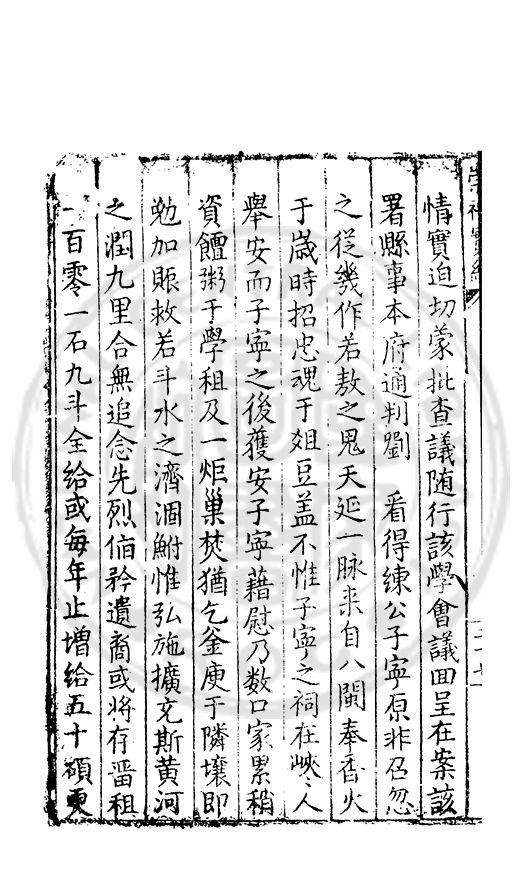 情實迫切蒙批查議随行該學會議回呈在案該
署縣事本府通判劉　看得練公子寧原非召忽
之從幾作若敖之鬼天延一脉来自八閩奉香火
于歳時招忠魂于爼豆盖不惟子寜之祠在峽峽人
舉安而子寜之後獲安子寜藉慰乃数口家累稍
資饘粥于學租及一炬巢焚猶乞釜庾于隣壤即
勉加賑救若斗水之濟涸鮒惟弘施擴充斯黄河
之潤九里合無追念先烈俯矜遺裔或将存畱租
一百零一石九斗全給或每年止增給五十碩更